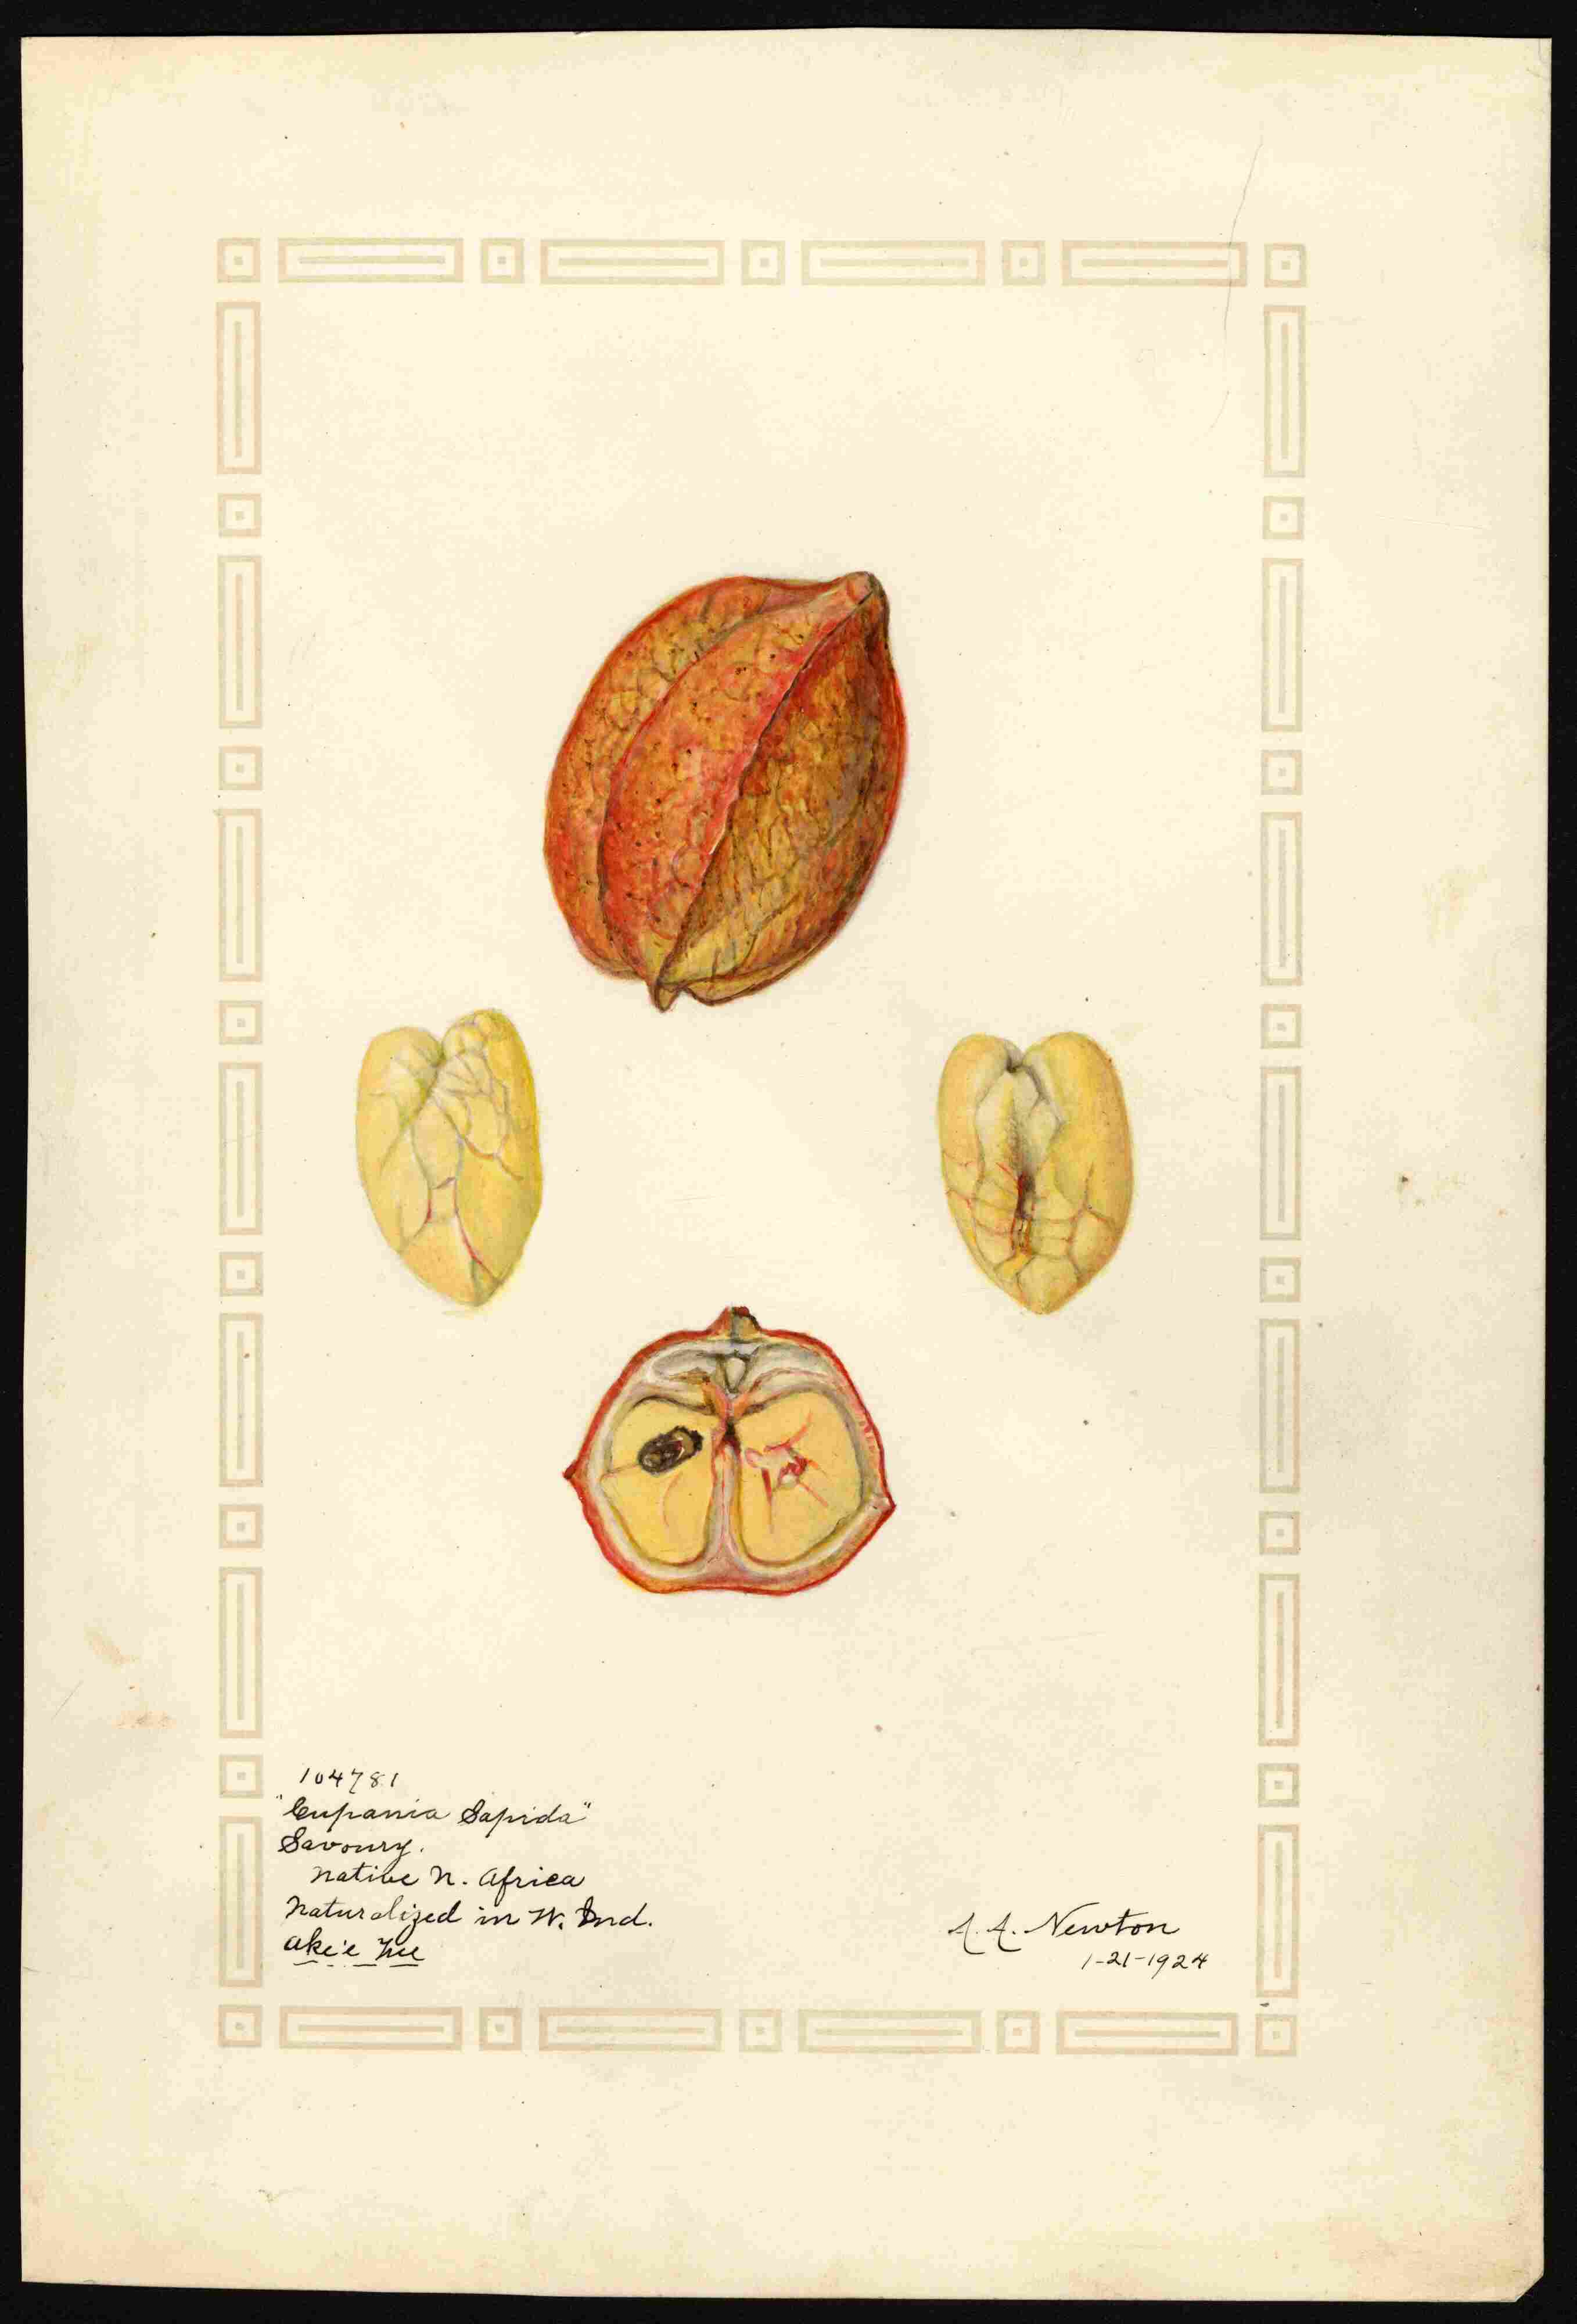 104781
"Cupania Sapida"
Savoury.
Native N. Africa
Naturalized in W. Ind.
Akee Tree
A. A. Newton
1-21-1924